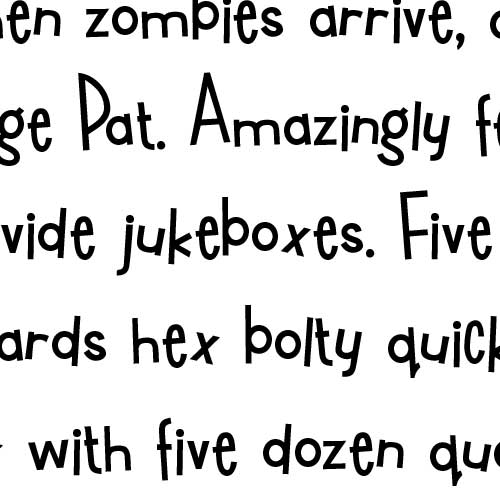 hen zombies arrive,
ge Pat. Amazingly fe
vide jukeboxes. Five
ards hex bolty quick
with five dozen qua